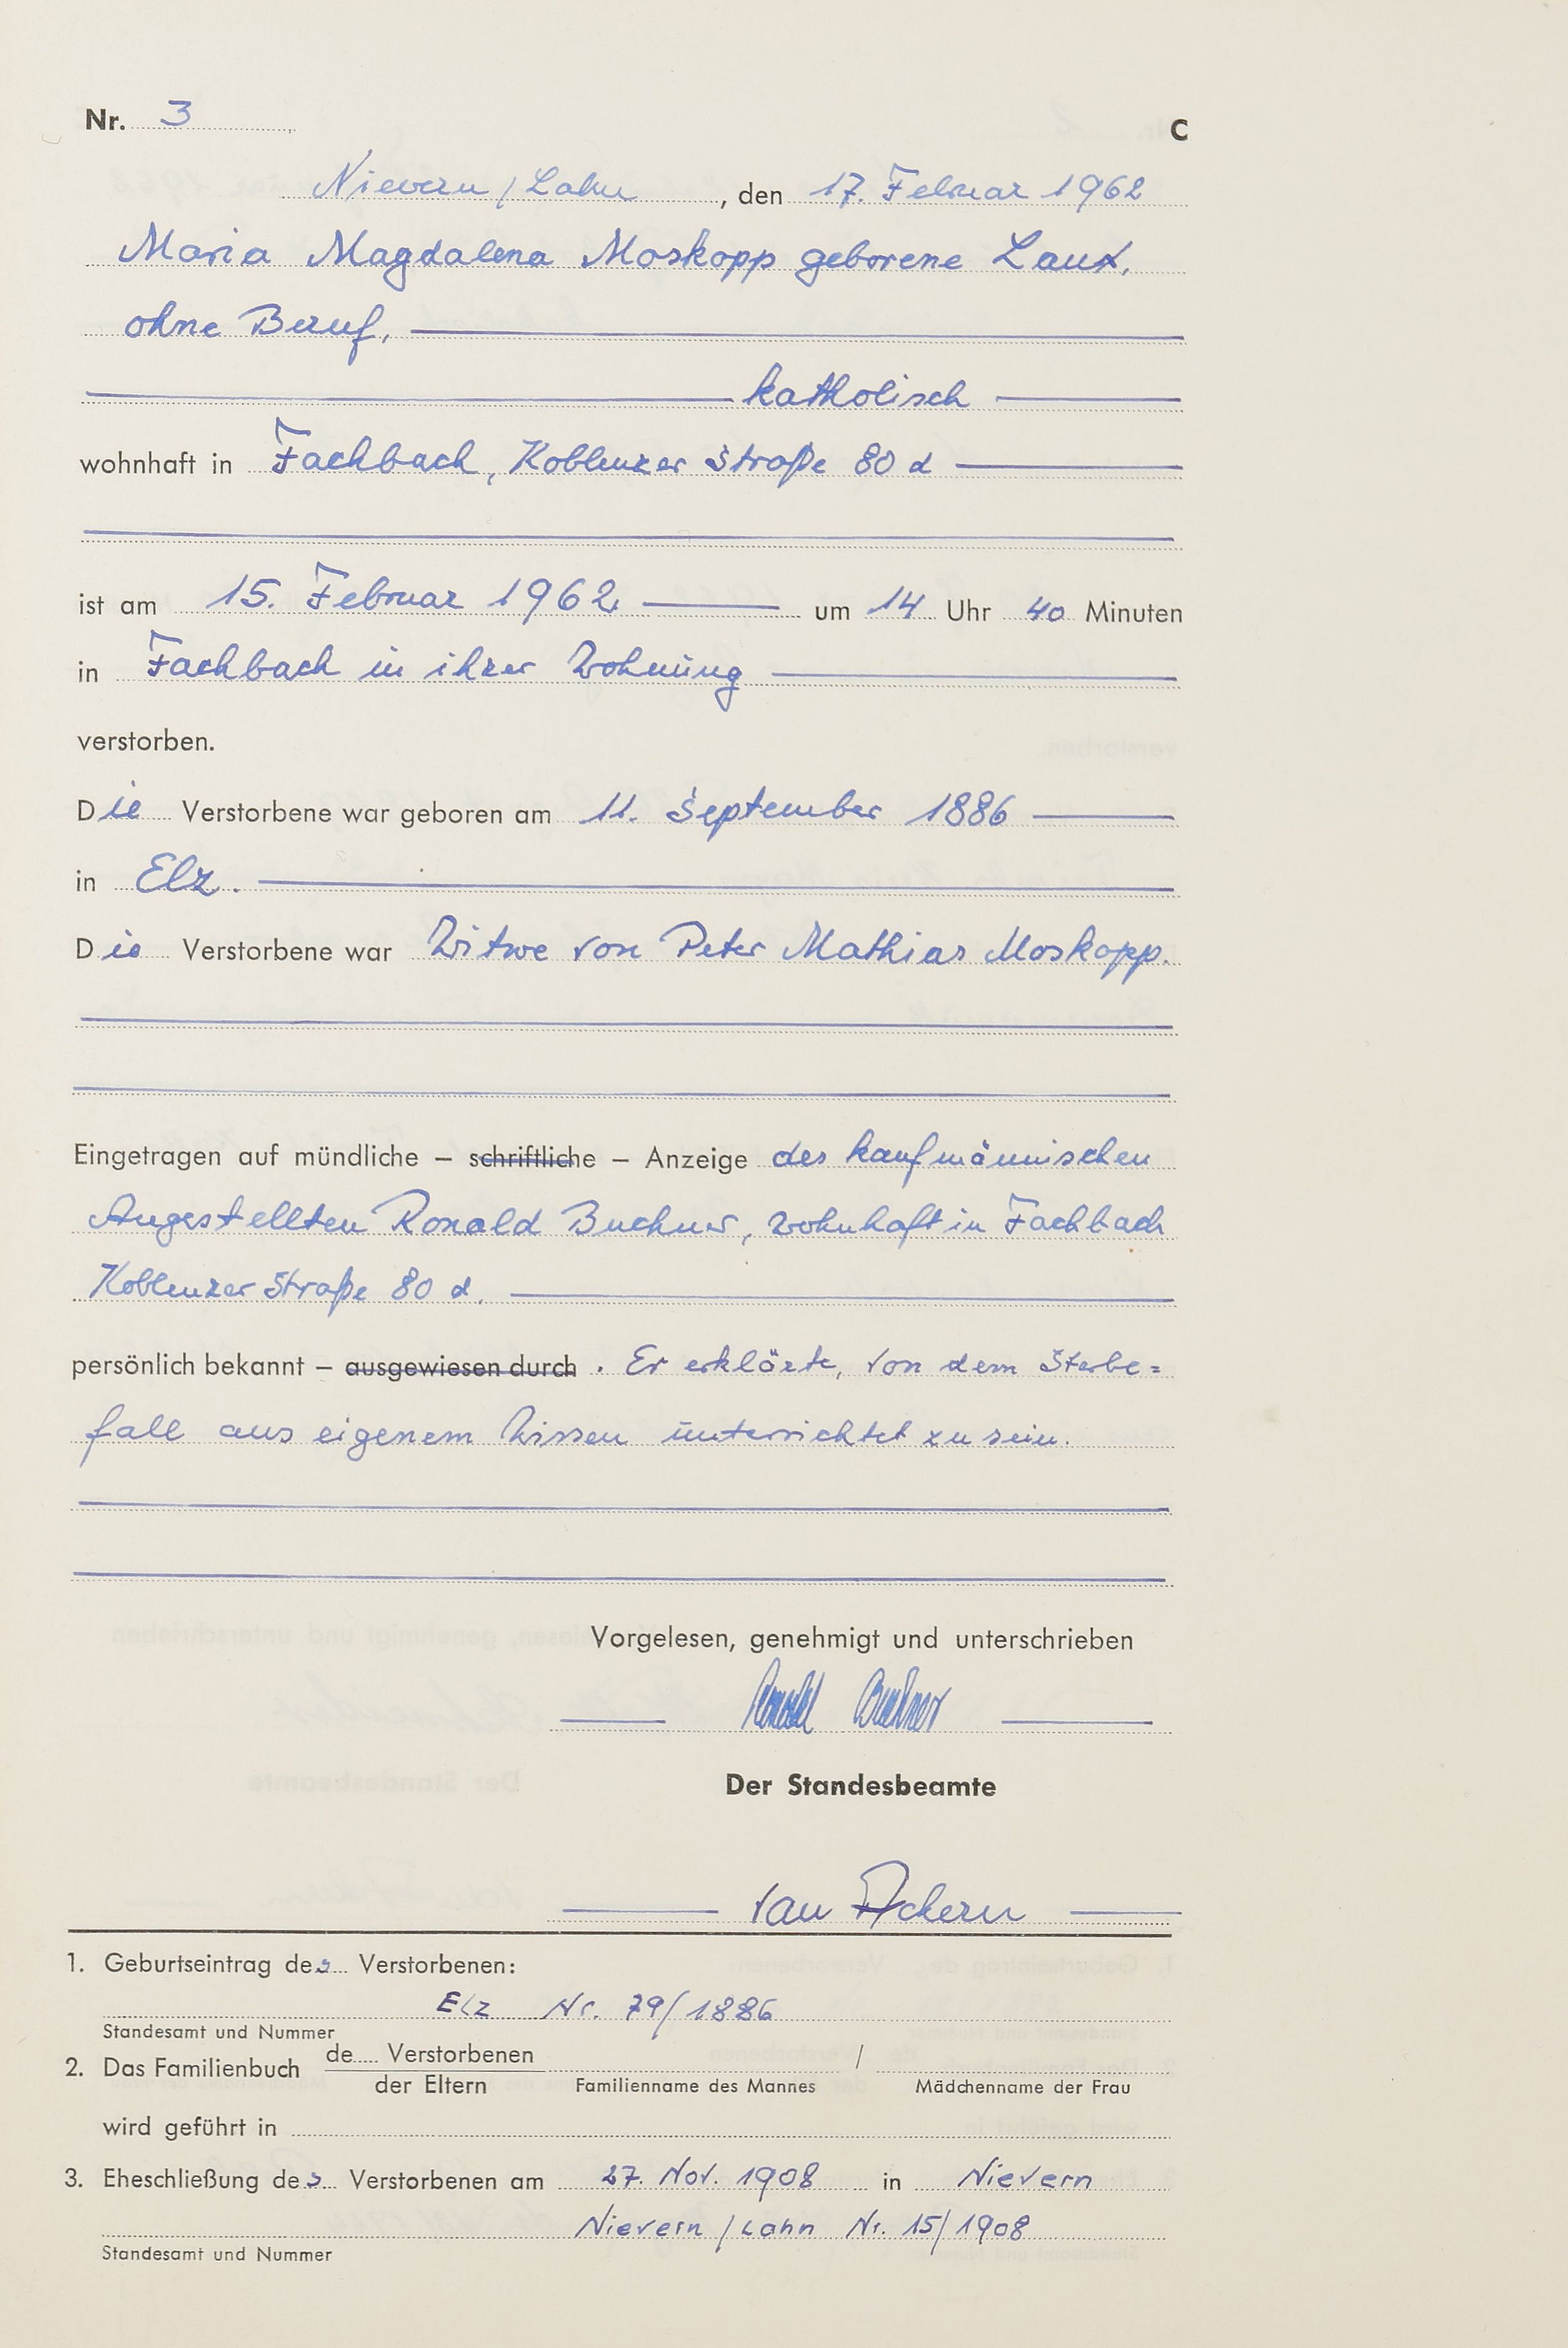 Nr. 3
C
Nievern / Lahn, den 17. Februar 1962
Maria Magdalena Moskopp geborene Laux,
ohne Beruf,
katholisch
wohnhaft in Fachbach, Koblenzer Straße 80 d
ist am 15. Februar 1962 um 14 Uhr 40 Minuten
in Fachbach in ihrer Wohnung
verstorben.
Die Verstorbene war geboren am 11. September 1886
in Elz.
Die Verstorbene war Witwe von Peter Mathias Moskopp.
Eingetragen auf mündliche – schriftliche – Anzeige des kaufmännischen
Angestellten Ronald Buchner, wohnhaft in Fachbach
Koblenzer Straße 80 d.
persönlich bekannt – ausgewiesen durch. Er erklärte, von dem Sterbe=
fall aus eigenem Wissen unterrichtet zu sein.
Vorgelesen, genehmigt und unterschrieben
Ronald Buchner
Der Standesbeamte
van Ackern
1. Geburtseintrag der Verstorbenen:
Elz Nr. 79/1886
Standesamt und Nummer
2. Das Familienbuch de Verstorbenen /
der Eltern Familienname des Mannes Mädchenname der Frau
wird geführt in
3. Eheschließung der Verstorbenen am 27. Nov. 1908 in Nievern
Nievern / Lahn Nr. 15/1908
Standesamt und Nummer